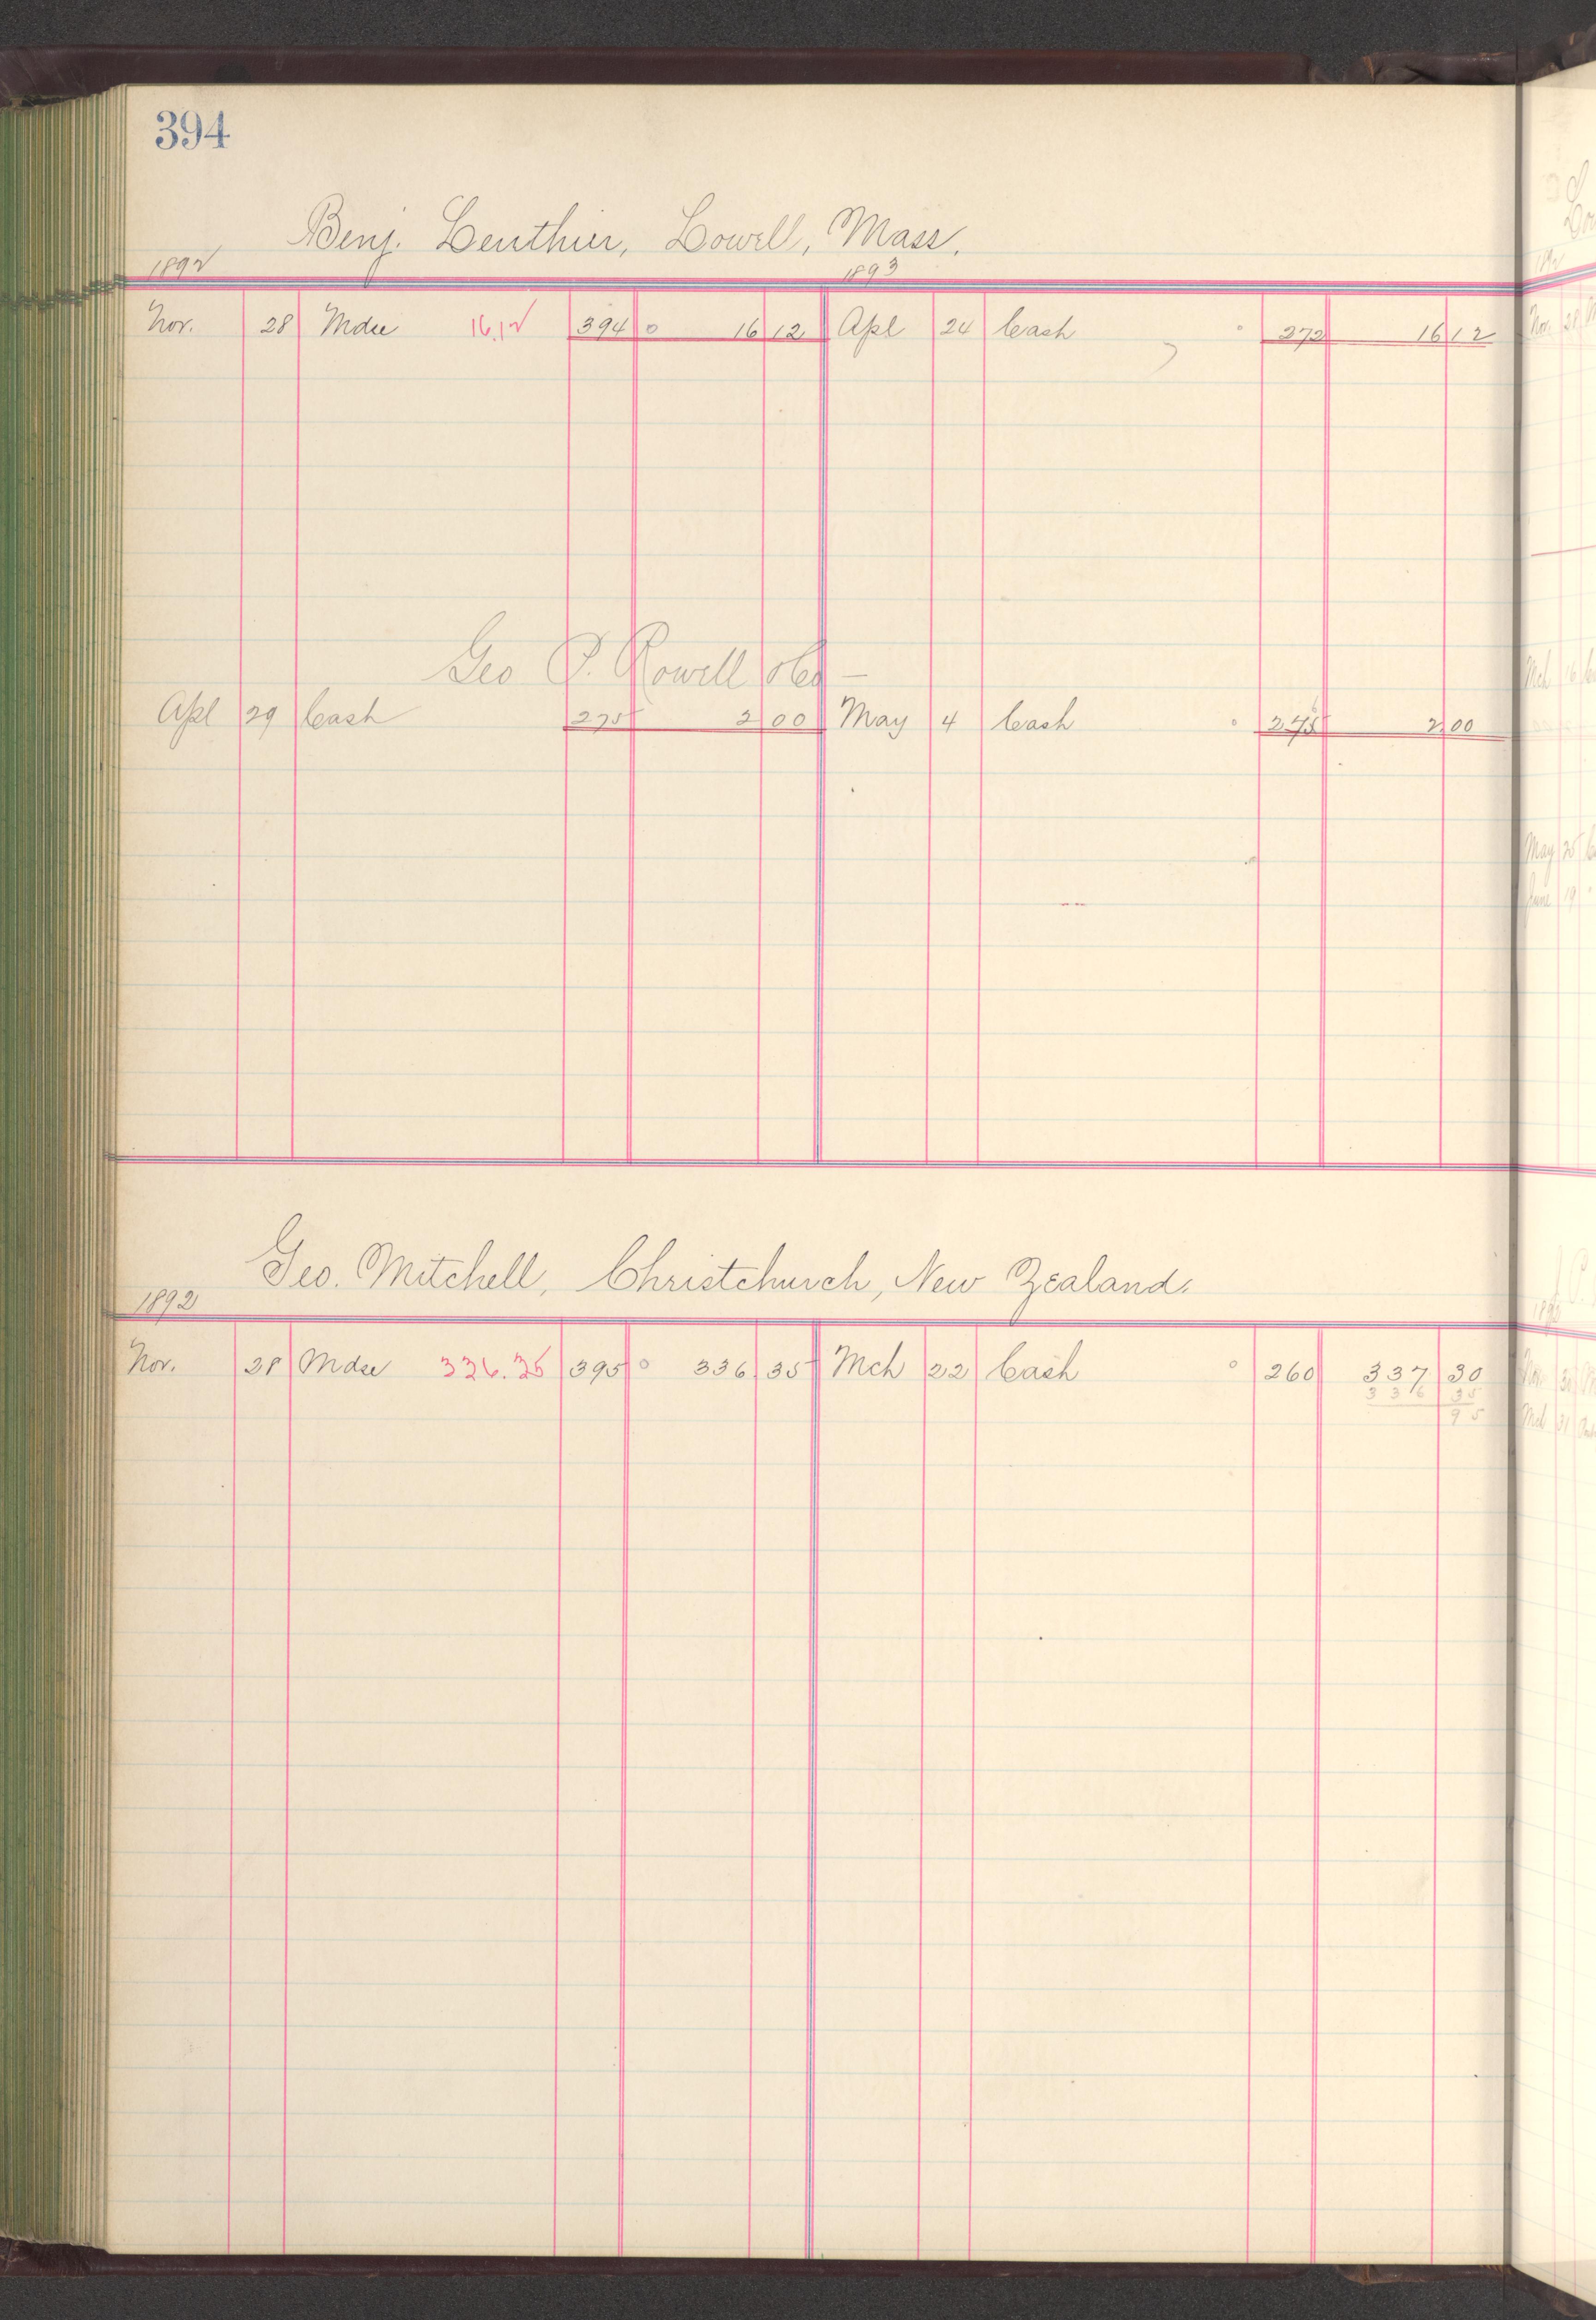 394
Benj. Lenthier, Lowell, Mass.
1892 1893
Nov. 28 Mdse 16.12 394 16 12 Apl 24 Cash 272 16 12
Geo P. Rowell & Co
Apl 29 Cash 275 2 00 May 4 Cash 275 2 00
Geo. Mitchell, Christchurch, New Zealand.
1892
Nov. 28 Mdse 336.35 395 336 35 Mch 22 Cash 260 337 30
336 35
95